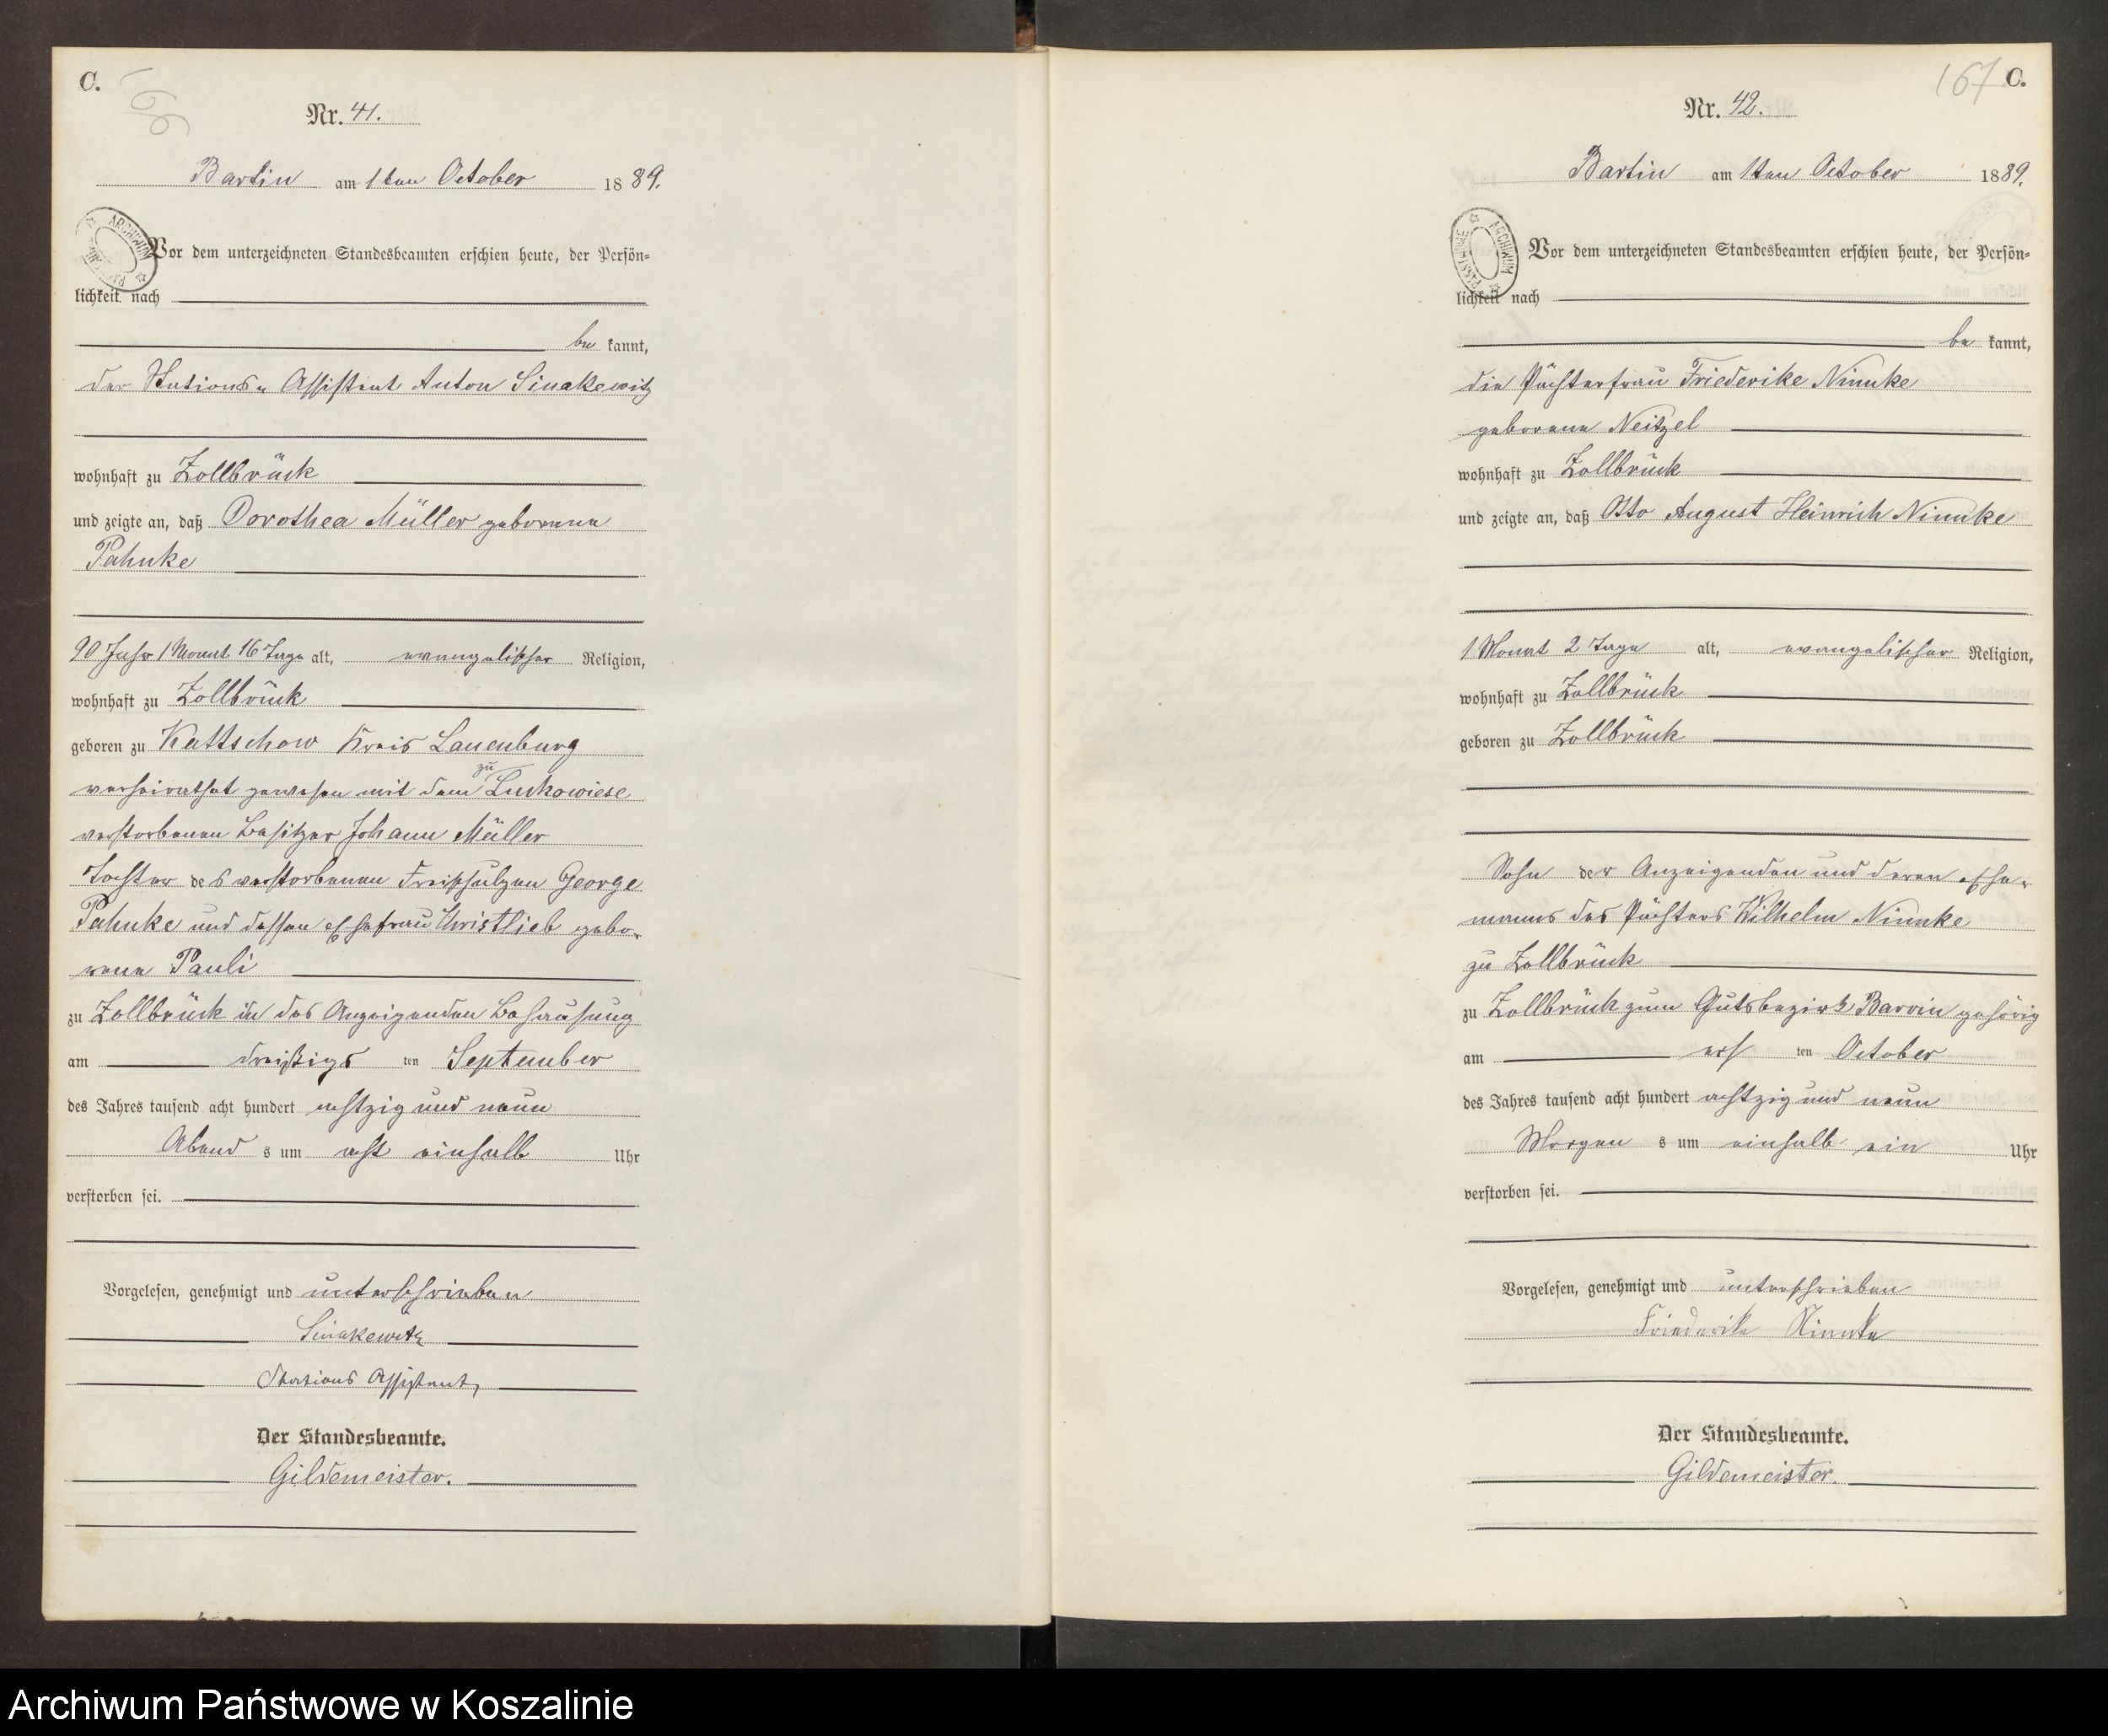 C.
166
Nr. 41.
Bartin am 1ten October 1889.
ARCHIWUM
Vor dem unterzeichneten Standesbeamten erschien heute, der Persön-
lichkeit nach
be kannt,
der Stations-Assistent Anton Sinakewitz
wohnhaft zu Zollbrück
und zeigte an, daß Dorothea Müller geborene
Pahnke
90 Jahr 1 Monat 16 Tage alt, evangelischer Religion,
wohnhaft zu Zollbrück
geboren zu Kattschow Kreis Lauenburg
verheirathet gewesen mit dem zu Luckowiese
verstorbenen Besitzer Johann Müller
Tochter des verstorbenen Freischulzen George
Pahnke und dessen Ehefrau Christlieb gebo-
rene Pauli
zu Zollbrück in des Anzeigenden Behausung
am dreißigs ten September
des Jahres tausend acht hundert achtzig und neun
Abend s um acht einhalb Uhr
verstorben sei.
Vorgelesen, genehmigt und unterschrieben
Sinakewitz
Stations Assistent,
Der Standesbeamte.
Gildemeister.
167 C.
Nr. 42.
Bartin am 1ten October 1889.
ARCHIWUM PAŃSTWOWE
Vor dem unterzeichneten Standesbeamten erschien heute, der Persön-
lichkeit nach
be kannt,
die Pächterfrau Friederike Nimke
geborene Neitzel
wohnhaft zu Zollbrück
und zeigte an, daß Otto August Heinrich Nimke
1 Monat 2 Tage alt, evangelischer Religion,
wohnhaft zu Zollbrück
geboren zu Zollbrück
Sohn der Anzeigenden und deren Ehe-
manns des Pächters Wilhelm Nimke
zu Zollbrück
zu Zollbrück zum Gutsbezirk Barvin gehörig
am ers ten October
des Jahres tausend acht hundert achtzig und neun
Morgen s um einhalb ein Uhr
verstorben sei.
Vorgelesen, genehmigt und unterschrieben
Friederike Nimke
Der Standesbeamte.
Gildemeister.
Archiwum Państwowe w Koszalinie